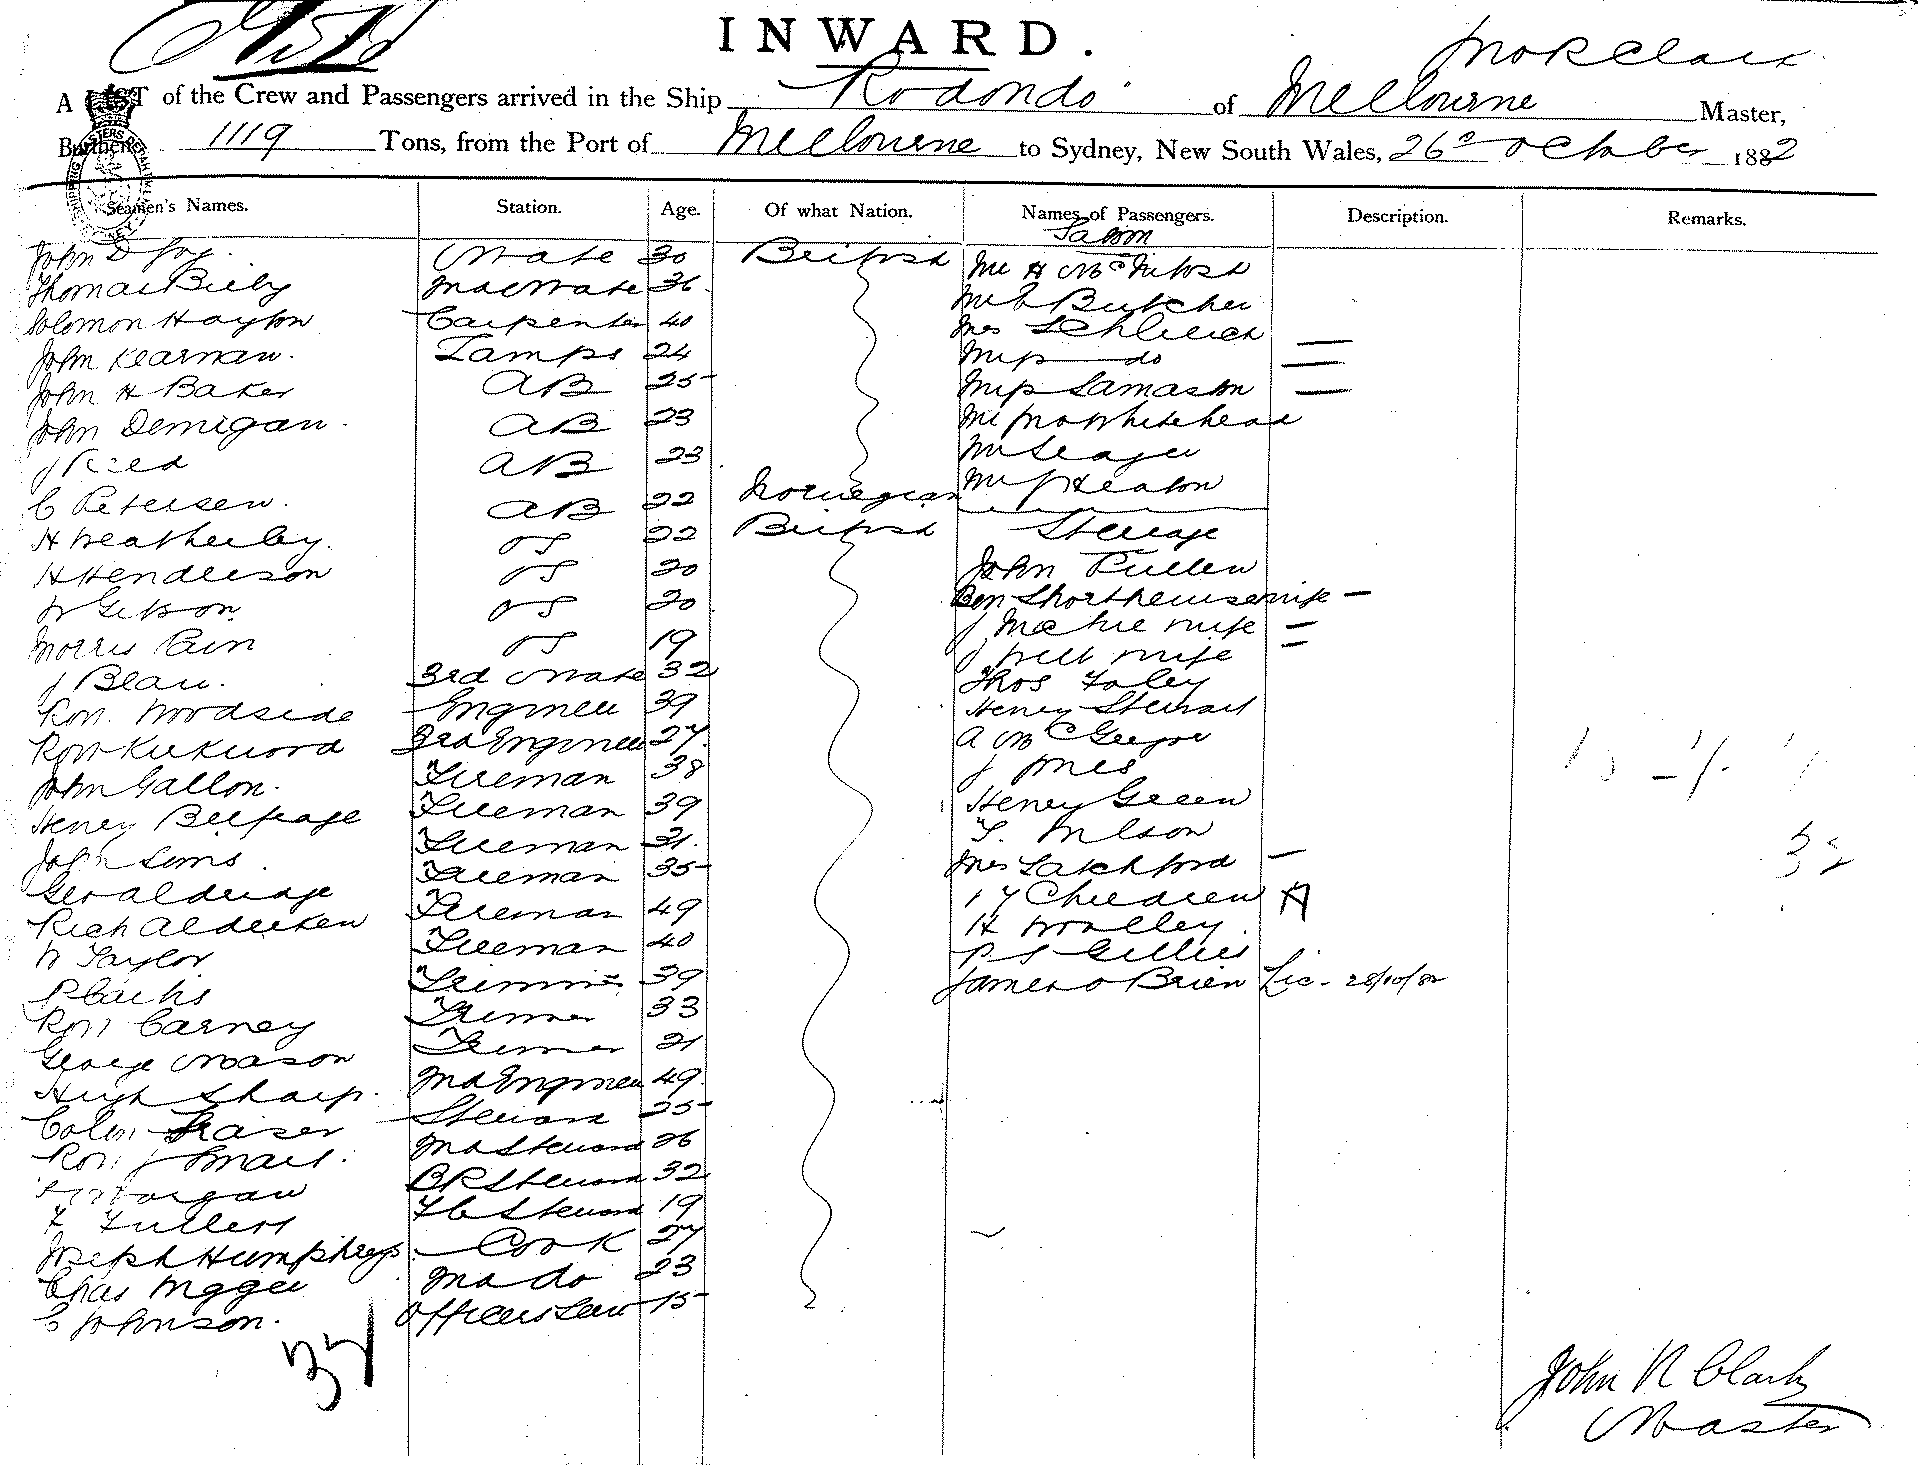 INWARD.
A LIST of the Crew and Passengers arrived in the Ship Rodondo of Melbourne Master,
Burthen 1119 Tons, from the Port of Melbourne to Sydney, New South Wales, 26th October 1882
Seamen's Names. Station. Age. Of what Nation. Names of Passengers. Description. Remarks.
Saloon
John D Fox Mate 30 British Mr H McIntosh
Thomas Bieby 2nd Mate 36 Mr C Butcher
Solomon Hayton Carpenter 40 Mrs Schleich
John Kearnan. Lamps 24 Miss do —
John H Baker AB 25 Miss Lamason —
John Demigan. AB 23 Mr Whitehead
J Reed AB 23 Mr Seager
C Petersen. AB 22 Norwegian Mr J Heaton
H Weatherley. OS 22 British Steerage
H Henderson OS 20 John Pullen
W Gibson OS 20 Ben Shorthouse wife —
Morris Cain OS 19 J McKie wife —
J Blau. 3rd Mate 32 J Will wife —
Robt. Woodside Engineer 39 Thos Foley
Robt Kirkwood 3rd Engineer 27 Henry Stewart
John Gallon. Fireman 38 A McGregor
Henry Belfrage Fireman 39 J Jones
John Sims Fireman 31. Henry Green
Geo Alderidge Fireman 35 T. Wilson
Rich Aldecken Fireman 49 Mrs Latchford —
W Taylor Fireman 40 Children
P Clarks Trimmer 39 H Wolley
Robt Carney Trimmer 33 P S Gillies
George Mason Trimmer 21 James O Brien Lic. 28/10/82
Hugh Sharp. 2nd Engineer 49
Colin Fraser Steward 25
Robt J Smail. 2nd Steward 26
Morgan BR Steward 32
F Fullers FC Steward 19
Joseph Humphreys Cook 27
Chas Magger 2nd do 23
C Johnson. Officers Serv 15
John R Clark
Master